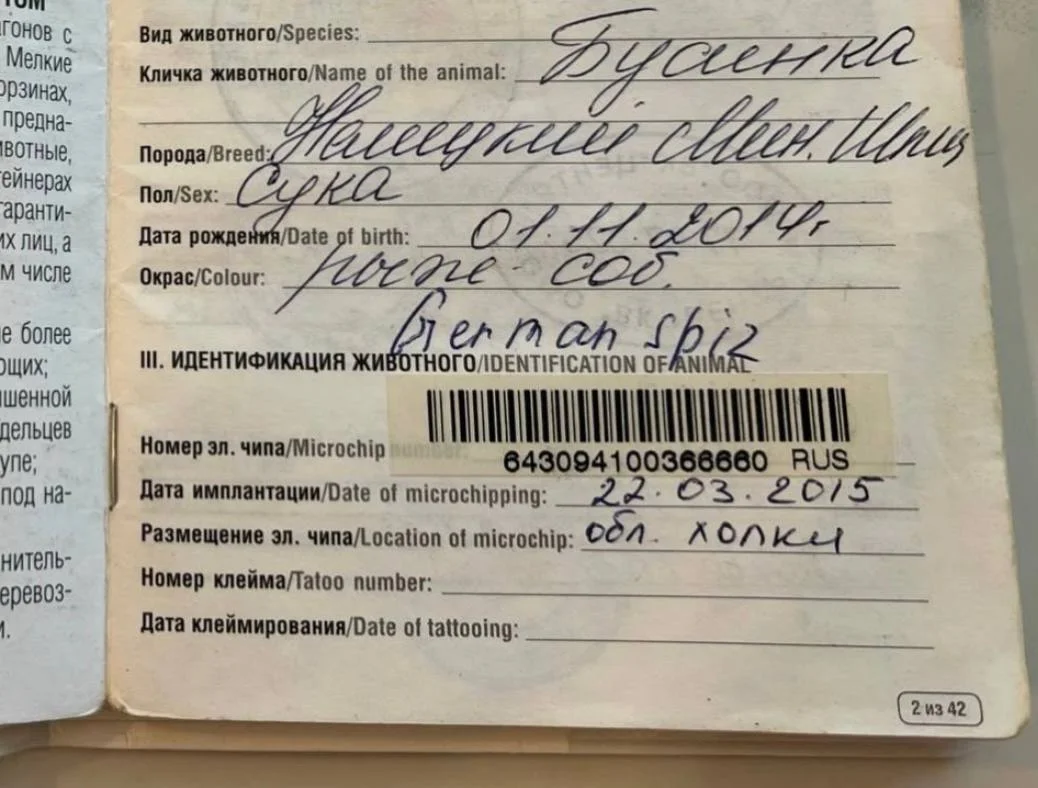 гонов с
Мелкие
рзинах,
предна-
вотные,
ейнерах
гаранти-
их лиц, а
м числе
е более
ющих;
шенной
дельцев
упе;
под на-
нитель-
еревоз-
Вид животного/Species:
Кличка животного/Name of the animal: Бусинка
Порода/Breed: Немецкий Мин. Шпиц
Пол/Sex: Сука
Дата рождения/Date of birth: 01.11.2014г.
Окрас/Colour: рыже-соб.
German spiz
III. ИДЕНТИФИКАЦИЯ ЖИВОТНОГО/IDENTIFICATION OF ANIMAL
Номер эл. чипа/Microchip number:
643094100366660 RUS
Дата имплантации/Date of microchipping: 22.03.2015
Размещение эл. чипа/Location of microchip: обл. холки
Номер клейма/Tatoo number:
Дата клеймирования/Date of tattooing:
2 из 42